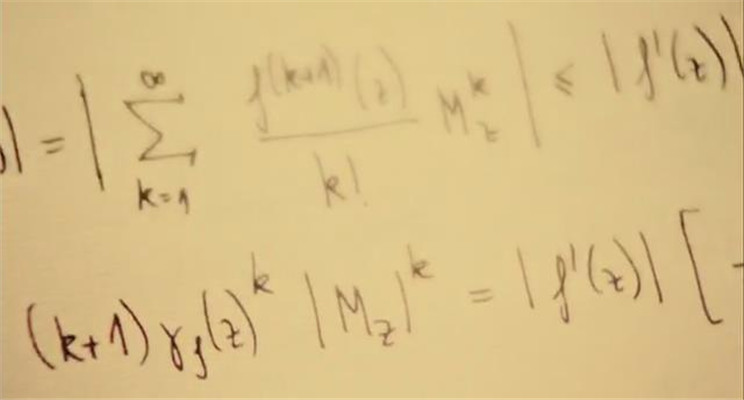 )| = | ∑_{k=1}^{∞} f^{(k+1)}(z) / k! M_z^k | ≤ |f'(z)|
(k+1) γ_f(z)^k |M_z|^k = |f'(z)| [